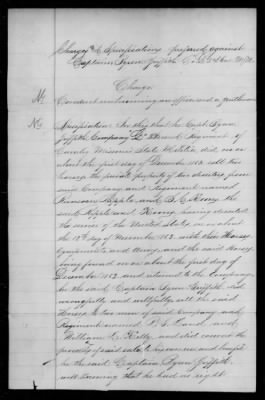 Charges & Specifications prefered against
Captain Lynn Griffith Co.
Charge
Conduct unbecoming an officer and a gentleman
Specification In this that he Capt. Lynn
Griffith, Company Regiment of
Cavalry Missouri State Militia, did, on or
about the first day of December 1863, sell two
horses, the private property of two deserters from
said Company and Regiment named
Apple, and Kenny, the
said Apple and Kenny, having deserted
the service of the United States, on or about
the 19th day of November 1863, with their Horses
Equipments and Arms, and the said Horses
being found on or about the first day of
December 1863 and returned to the Company,
he the said Captain Lynn Griffith did
wrongfully and willfully sell the said
Horses, to two men of said Company and
Regiment named and
William Kelly and did convert the
proceeds of said sale to his own use and benefit
he the said Captain Lynn Griffith
well knowing that he had no right